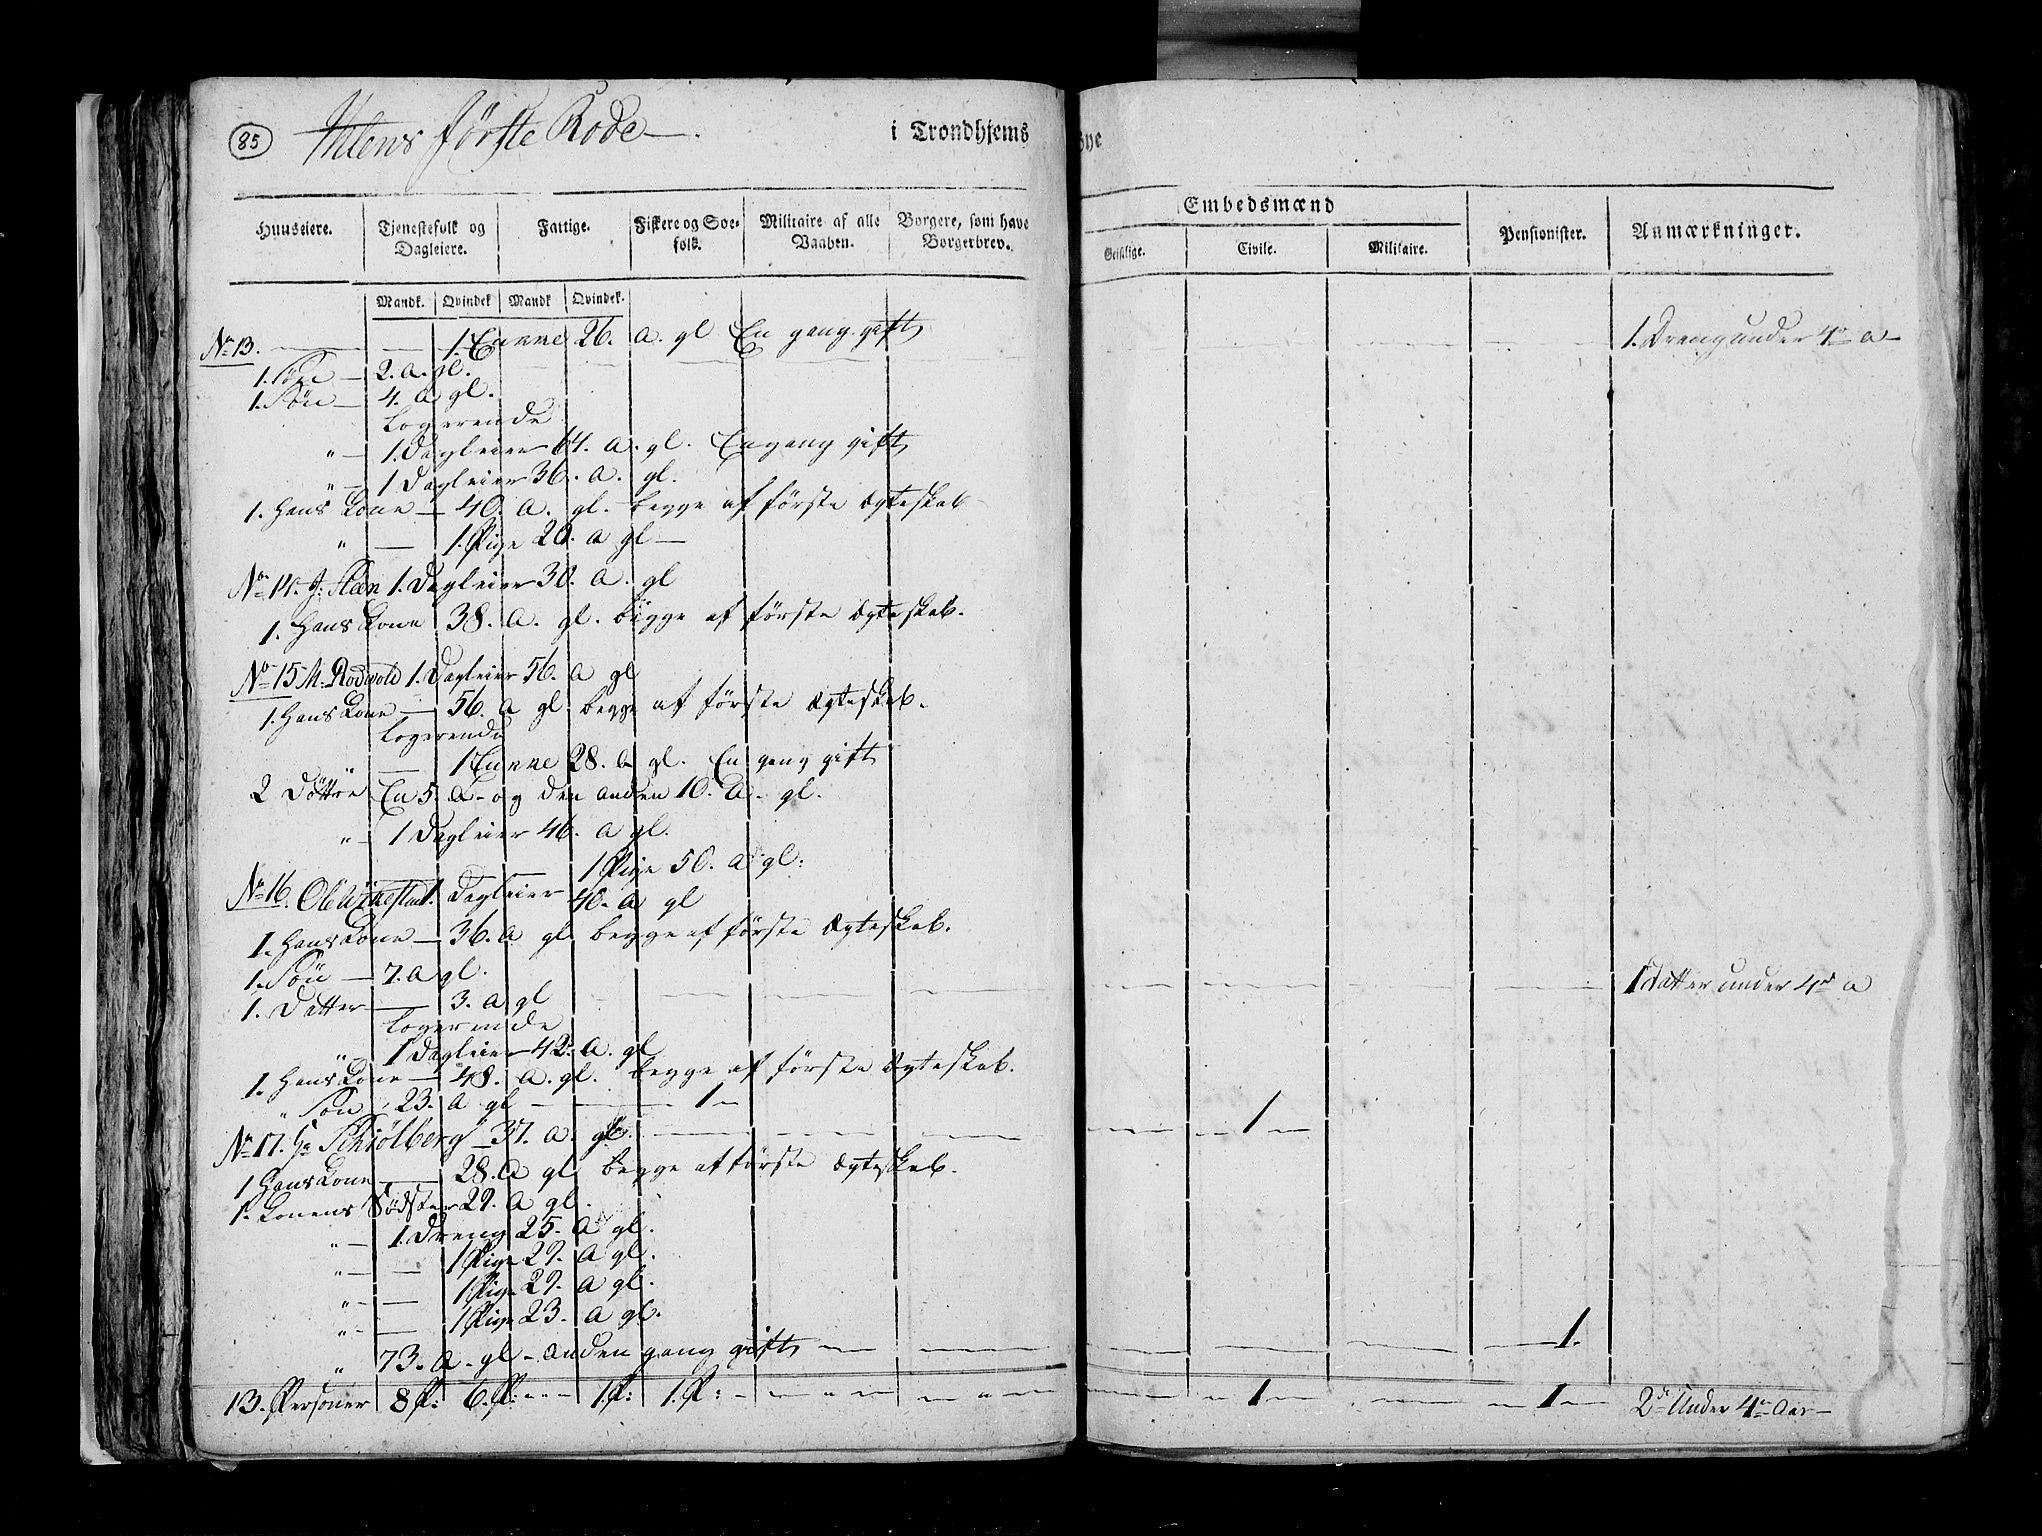 85
Ihlens første Rode
i Trondhjems
Bye
Embedsmænd
Huuseiere. Tjenestefolk og Dagleiere. Fattige. Fiskere og Søefolk. Militaire af alle Vaaben. Borgere, som have Borgerbrev. Geistlige. Civile. Militaire. Pensionister. Anmærkninger.
Mandk. Qvindek Mandk Qvindek.
No 13. — — 1. Encke 26. a. gl En gang gift 1. Dreng under 4re a
1. Søn — 2. a. gl.
1. Søn — 4. a gl.
Logerende
" — 1. Dagleier 64. a. gl. En gang gift
" — 1 Dagleier 36. a. gl.
1. Hans Kone — 40. a. gl. begge af første Ægteskab
" — 1. Pige 20. a gl —
No 14. J: Steen 1. Dagleier 30. a. gl
1. Hans Kone 38. a. gl. begge af første Ægteskab.
No 15 M. Rodvold 1. Dagleier 56. a gl
1. Hans Kone — 56. a gl. begge af første Ægteskab.
Logerende
" — 1 Encke 28. a gl. En gang gift
2 Døttre En 5. a — og den anden 10. a. gl.
" — 1 Dagleier 46. a gl.
1 Pige 50. a gl:
No 16. Ole 1. Dagleier 40. a gl
1. Hans Kone — 36. a gl. begge af første Ægteskab.
1. Søn — 7. a gl.
1. Datter — 3. a gl 1 Datter under 4re a
Logerende
" 1 Dagleier 42. a. gl
1. Hans Kone — 48. a. gl. begge af første Ægteskab.
" Søn 23. a gl — 1 —
No 17. Hr Schiølberg — 37. a. gl. 1
1 Hans Kone — 28. a gl begge af første Ægteskab.
1. Konens Sødster 29. a gl.
" — 1. Dreng 25. a gl.
" — 1 Pige 29. a gl.
" — 1 Pige 29. a gl.
" — 1 Pige 23. a gl.
" 73. a. gl — anden gang gift 1.
13. Personer 8 P: 6. P: 1. P: 1. P: 1 1 2de Under 4re Aar